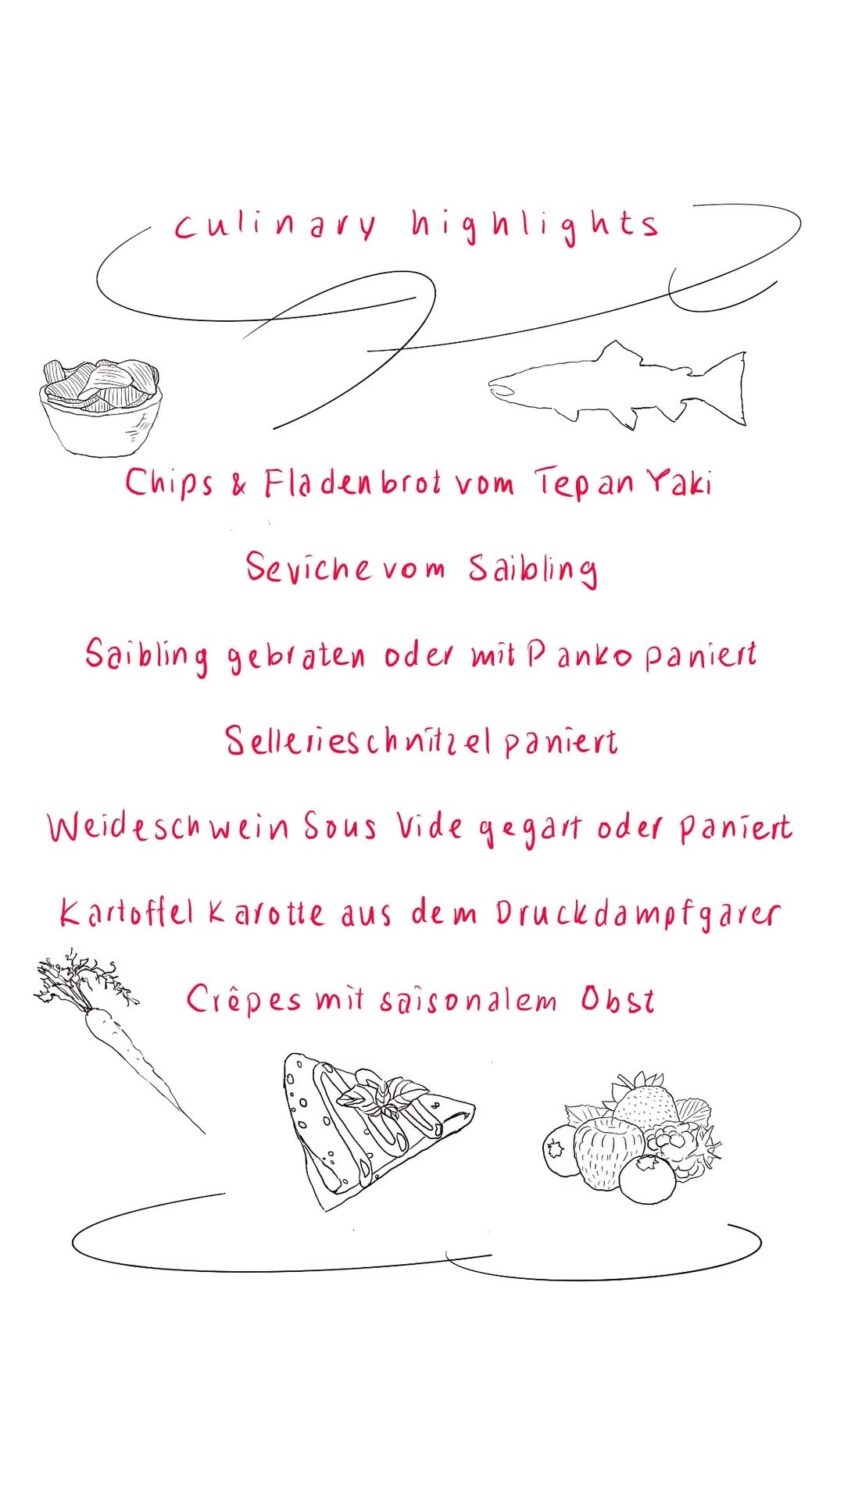 culinary highlights
Chips & Fladenbrot vom Tepan Yaki
Seviche vom Saibling
Saibling gebraten oder mit Panko paniert
Sellerieschnitzel paniert
Weideschwein Sous Vide gegart oder paniert
Kartoffel Karotte aus dem Druckdampfgarer
Crêpes mit saisonalem Obst